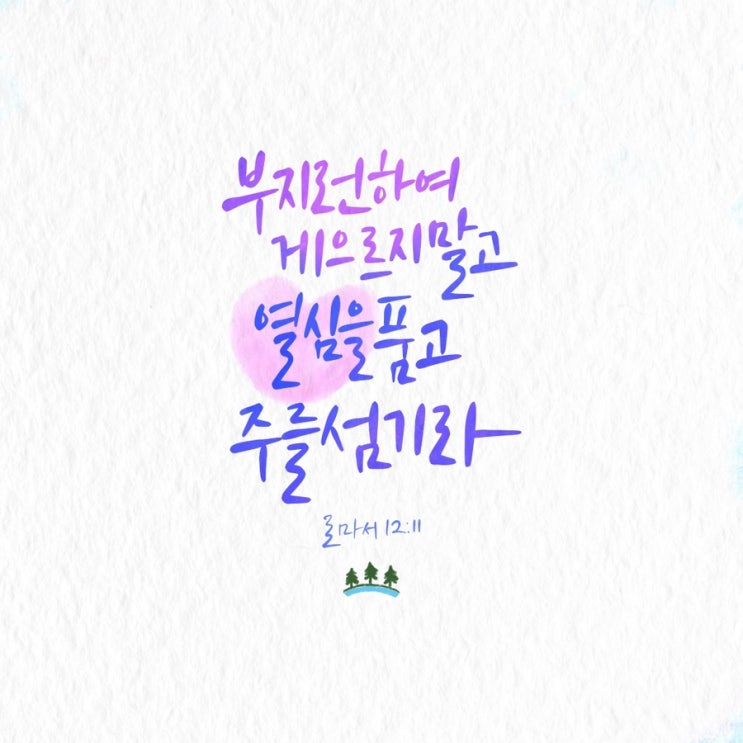 부지런하여
게으르지말고
열심을품고
주를섬기라
로마서 12:11